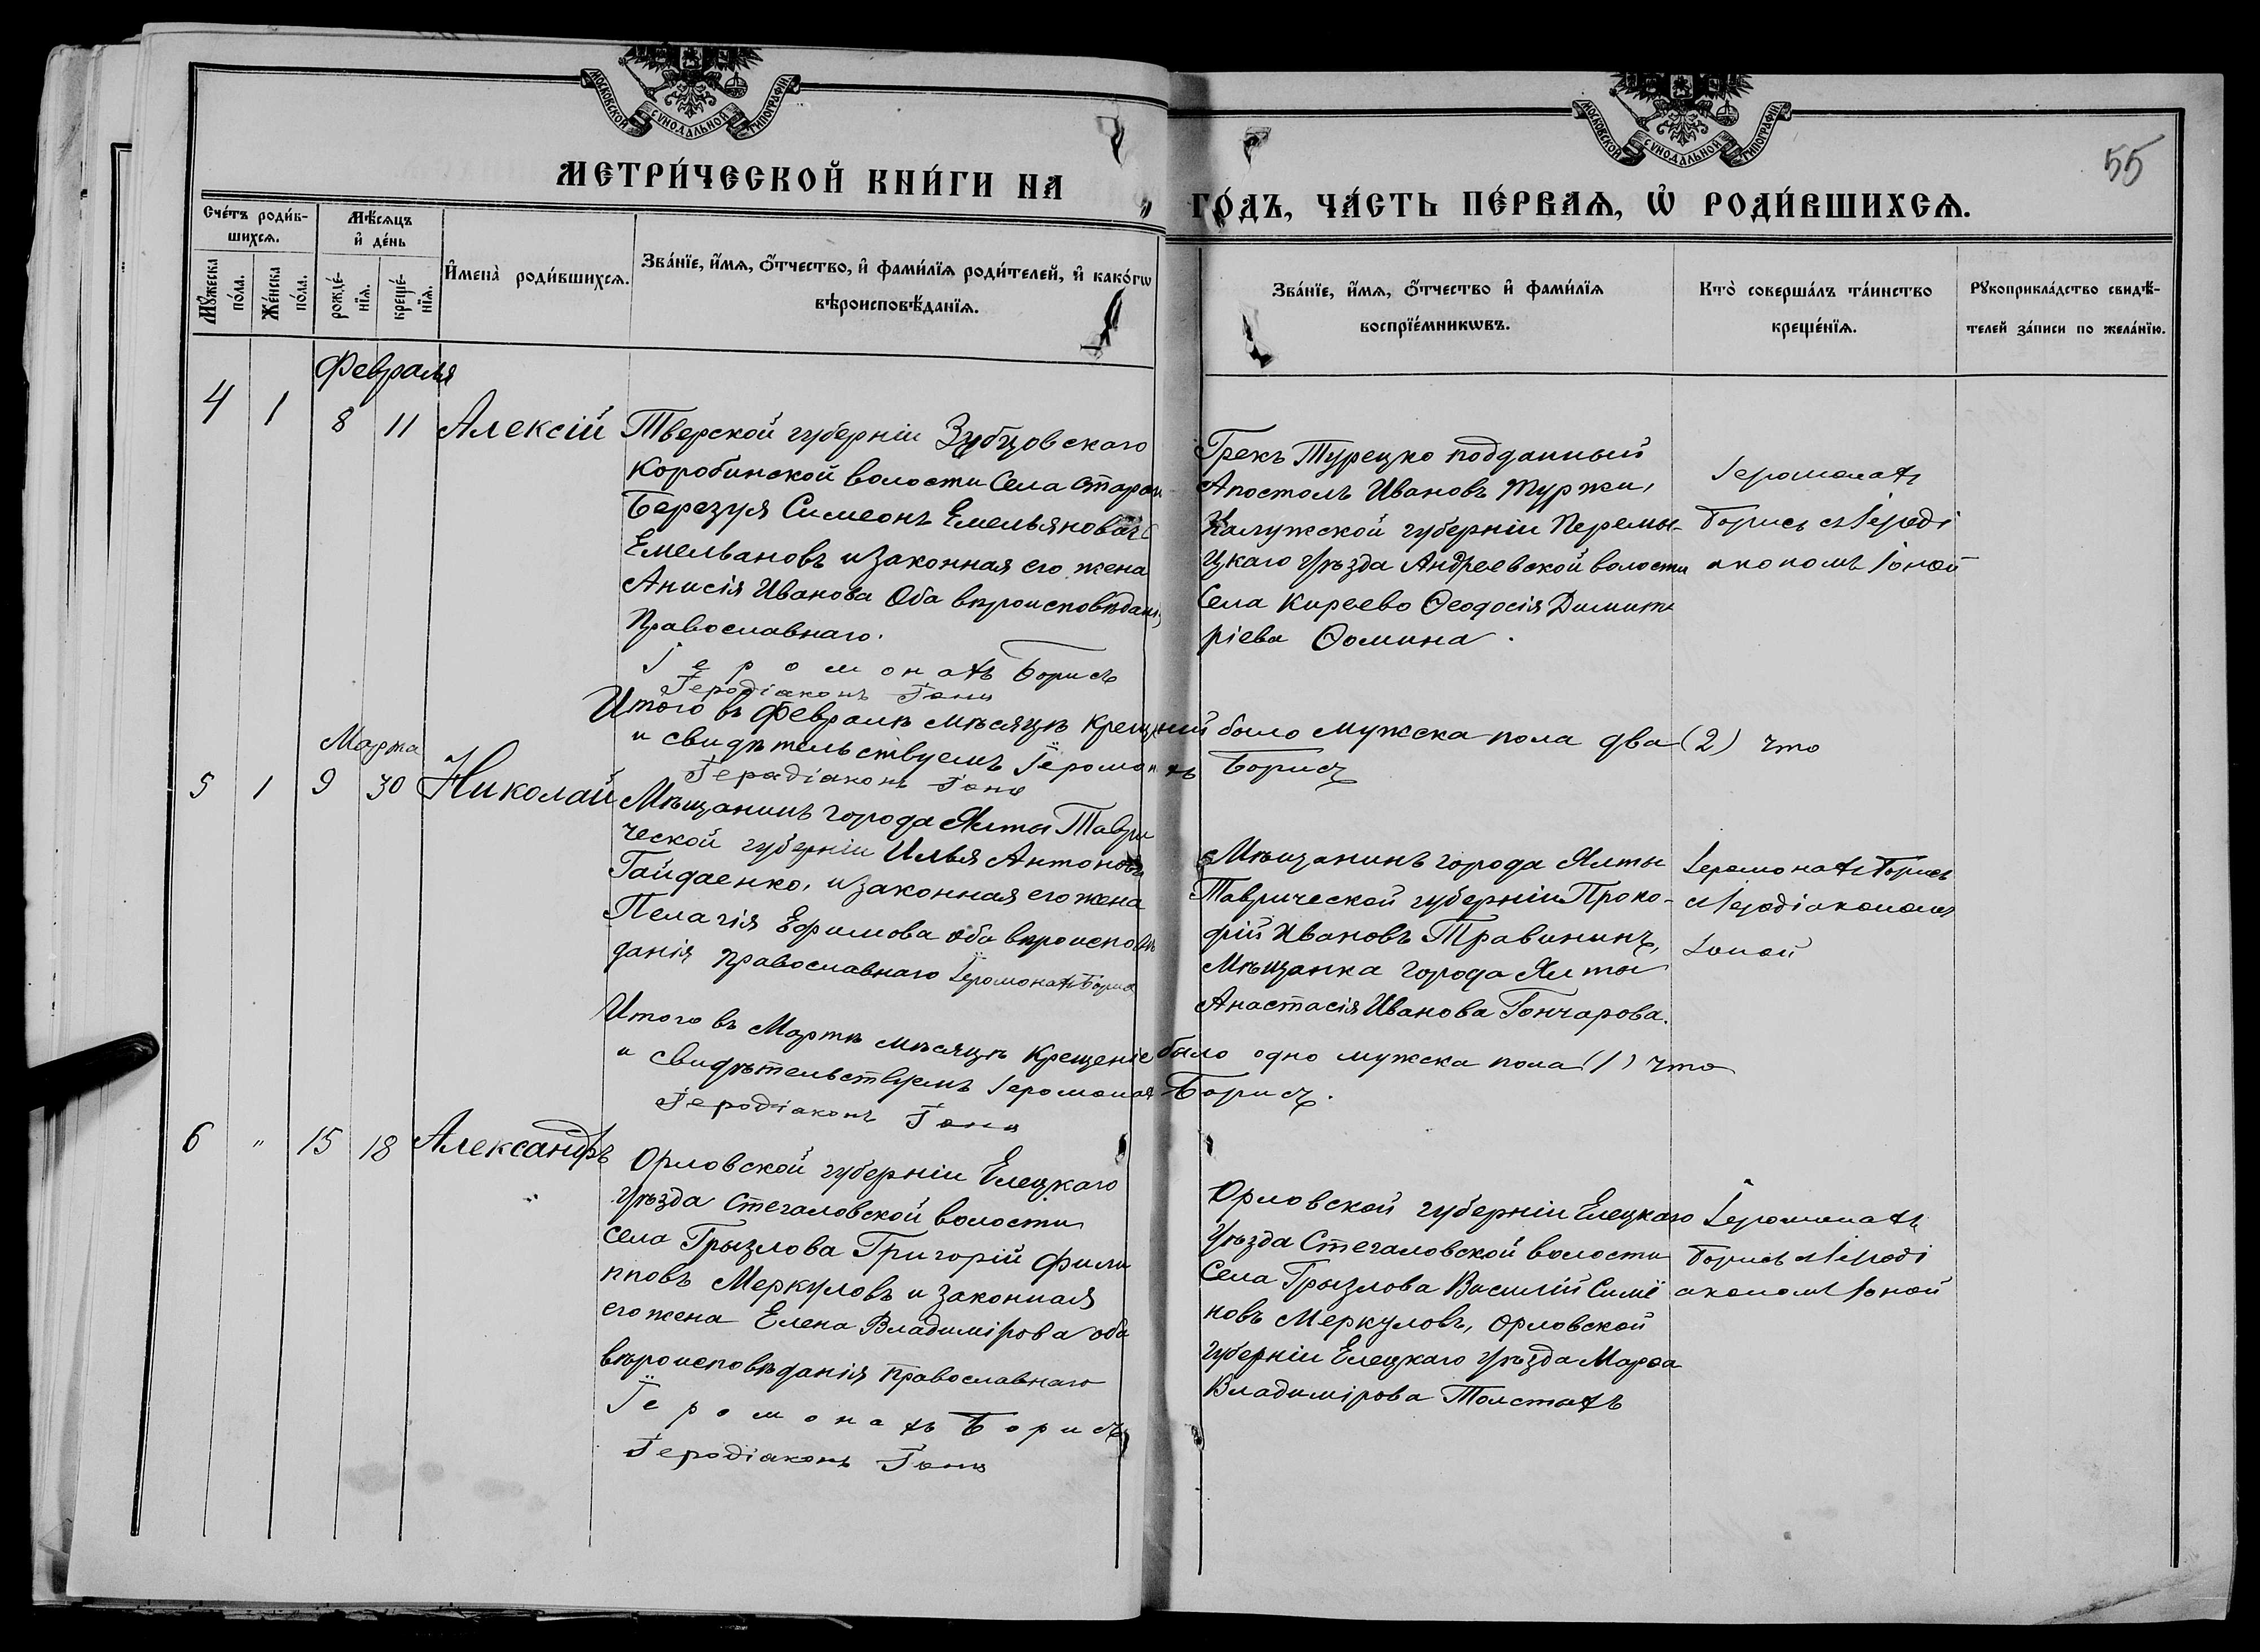 МОСКОВСКОЙ СУНОДАЛЬНОЙ ТИПОГРАФІИ
МОСКОВСКОЙ СУНОДАЛЬНОЙ ТИПОГРАФІИ
55
МЕТРИ́ЧЕСКОЙ КНИ́ГИ НА
ГО́ДЪ, ЧА́СТЬ ПЕ́РВАѦ, Ѡ҆ РОДИ́ВШИХСѦ.
Сче́тъ роди́в-
шихсѧ.
Мꙋ́жеска
по́ла.
Же́нска
по́ла.
Мѣ́сѧцъ
и҆ де́нь
рожде́-
нїѧ.
креще́-
нїѧ.
И҆мена̀ роди́вшихсѧ.
Зва́нїе, и҆́мѧ, ѻ҆́тчество, и҆ фами́лїѧ роди́телей, и҆ како́гѡ
вѣроисповѣ́данїѧ.
Зва́нїе, и҆́мѧ, ѻ҆́тчество и҆ фами́лїѧ
воспрїе́мникѡвъ.
Кто̀ соверша́лъ та́инство
креще́нїѧ.
Рꙋкоприкла́дство свидѣ́-
телей за́писи по жела́нїю.
Февраля
4 1 8 11 Алексій
Тверской губерніи Зубцовскаго
Коробинской волости Села Старои
Березуя Симеонъ Емельяновъ
Емельвановъ и законная его жена
Анисія Иванова Оба вѣроисповѣдані,
Православнаго.
Іеромонахъ Борисъ
Іеродіаконъ Іона
Грекъ Турецко подданный
Апостолъ Ивановъ Муржи,
Калужской губерніи Перемы-
шкаго уѣзда Андреевской волости
Села Киреево Ѳеодосія Димит
ріева Ѳомина.
Іеромонахъ
Борисъ съ Іероді
акономъ Іоной
Итого въ Февралѣ мѣсяцѣ Крещеній было мужска пола два (2) что
и свидѣтельствуемъ Іеромонахъ Борисъ
Іеродіаконъ Іона
Марта
5 1 9 30 Николай
Мѣщанинъ города Ялты Таври
ческой губерніи Илья Антоновъ
Гайдаенко, и законная его жена
Пелагія Ефимова оба вѣроисповѣ
данія Православнаго Іеромонахъ Борисъ
Мѣщанинъ города Ялты
Таврической губерніи Проко-
фій Ивановъ Травининъ,
Мѣщанка города Ялты
Анастасія Иванова Гончарова.
Іеромонахъ Борисъ
съ Іеродіакономъ
Іоной
Итого въ Мартѣ мѣсяцѣ Крещеніе было одно мужска пола (1) что
и свидѣтельствуемъ Іеромонахъ Борисъ.
Іеродіаконъ Іона
6 " 15 18 Александръ
Орловской губерніи Елецкаго
уѣзда Стегаловской волости
села Грызлова Григорій Фили
пповъ Меркуловъ и законная
его жена Елена Владимірова оба
вѣроисповѣданія Православнаго
Іеромонахъ Борисъ
Іеродіаконъ Іона
Орловской губерніи Елецкаго
Уѣзда Стегаловской волости
Села Грызлова Василій Симе
новъ Меркуловъ, Орловской
губерніи Елецкаго уѣзда Марѳа
Владимірова Толстыхъ
Іеромонахъ
Борисъ съ Іероді
акономъ Іоной